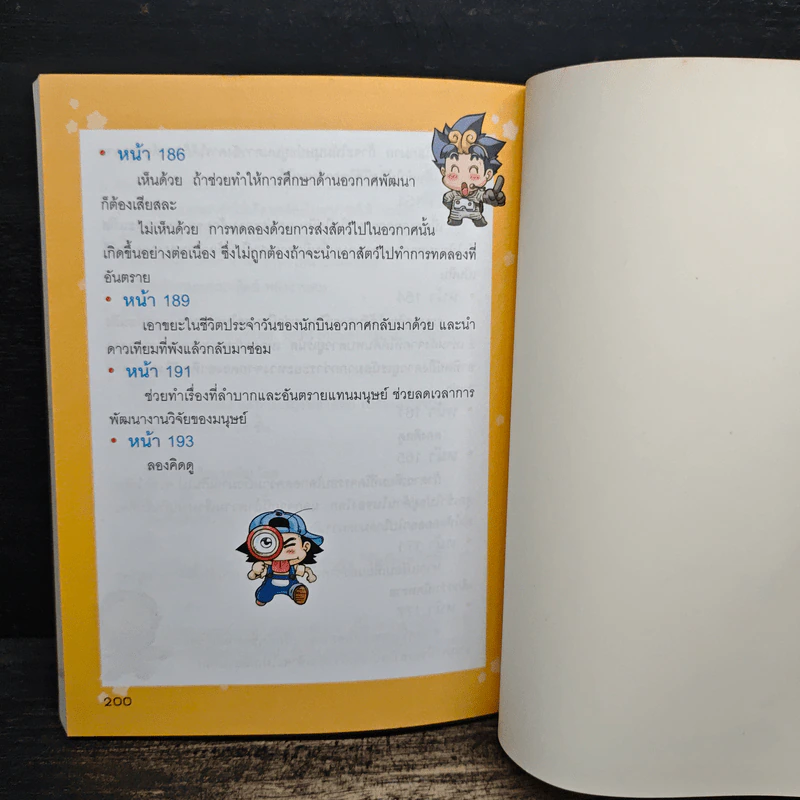 • หน้า 186
เห็นด้วย ถ้าช่วยทำให้การศึกษาด้านอวกาศพัฒนา
ก็ต้องเสียสละ
ไม่เห็นด้วย การทดลองด้วยการส่งสัตว์ไปในอวกาศนั้น
เกิดขึ้นอย่างต่อเนื่อง ซึ่งไม่ถูกต้องถ้าจะนำเอาสัตว์ไปทำการทดลองที่
อันตราย
• หน้า 189
เอาขยะในชีวิตประจำวันของนักบินอวกาศกลับมาด้วย และนำ
ดาวเทียมที่พังแล้วกลับมาซ่อม
• หน้า 191
ช่วยทำเรื่องที่ลำบากและอันตรายแทนมนุษย์ ช่วยลดเวลาการ
พัฒนางานวิจัยของมนุษย์
• หน้า 193
ลองคิดดู
200